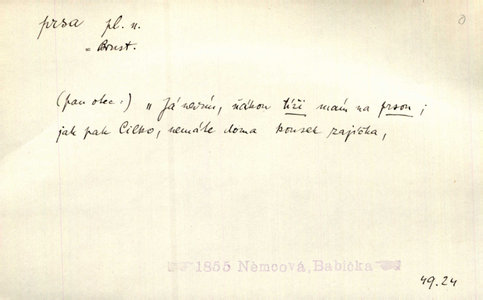 prsa pl. n.
= Brust.
(pan otec:) „ Já nevím, ňákou tíži mám na prsou ;
jak pak Cilko, nemáte doma kousek zajíčka,
1855 Němcová, Babička
49.24